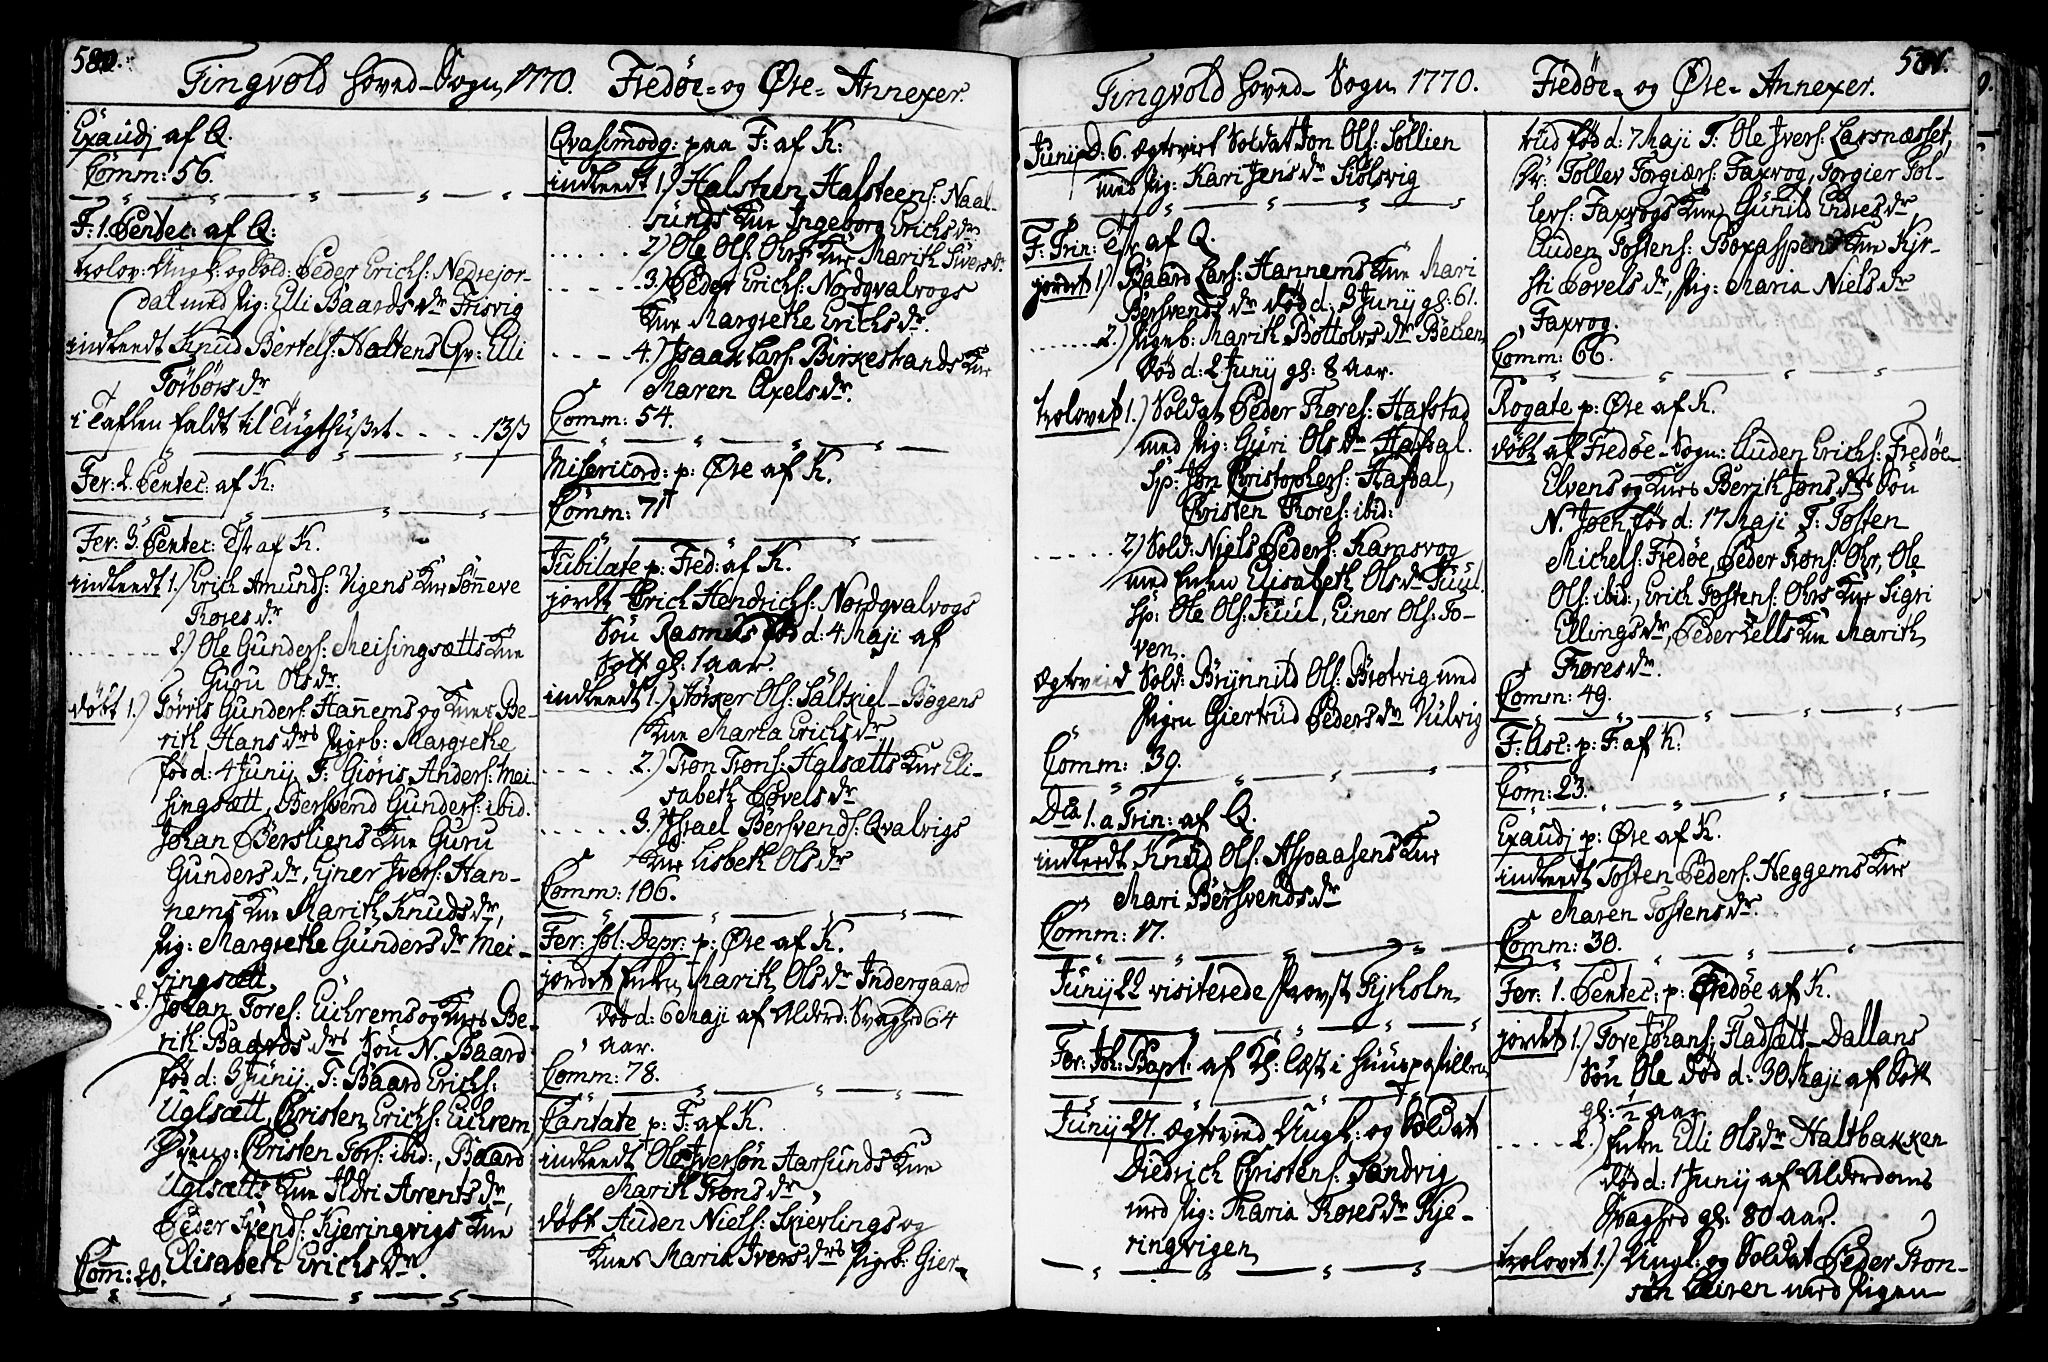 580.
Tingvold Hoved-Sogn 1770. Fredøe- og Øre- Annexer.
Exaudj af Q.
Comm: 56.
F. 1. Pentec: af Q:
trolov: Ungk: og Sold: Peder Erichs: Nedrejor-
dal med Pig: Elli Baards dr Frisvig
indleedt Knud Bertels: Haltens Qv: Elli
Torbørs dr
i Taflen faldt til Tugthuset 13 ß
Fer. 2. Pentec: af K:
Fer: 3. Pentec: af K.
indleedt 1.) Erich Amunds: Vigens Kne Sønneve
Tores dr
2.) Ole Gunders: Meisingsætts Kne
Guru Ols dr
døbt 1.) Torris Gunders: Hannems og Knes Be-
rith Hans drs Pigeb: Margrethe
fød d: 4 Junij T: Giøris Anders: Mei-
singsætt, Bersvend Gunders: ibid:
Johan Børsliens Kne Guru
Gunders dr, Ejner Ivers: Han-
nems Kne Marith Knuds dr,
Pig: Margrethe Gunders dr Mei-
singsætt.
2.) Johan Tores: Eichrems og Knes Be-
rith Baards drs Søn N. Baard
fød d: 3 Junij T: Baard Erichs:
Uglsætt, Christen Erichs: Eichrem,
Christen Tors: ibid:, Baard
Uglsætts Kne Ildri Arents dr,
Peder Svends: Kjeringvigs Kne
Elisabeth Erichs dr.
Com: 20.
Qvasimodog: paa F: af K:
indleedt 1.) Halsteen Halsteens: Naal-
sunds Kne Ingeborg Erichs dr
2) Ole Ols: Ohrs Kne Marith Sivers dr.
3.) Peder Erichs: Nordqvalvogs
Kne Margrethe Erichs dr.
4.) Isaax Lars: Birkestrands Kne
Maren Axels dr.
Comm: 54.
Misericord: p: Øre af K.
Comm: 71
Jubilate p: Fred: af K.
jordet Erich Hendrichs: Nordqvalvogs
Søn Rasmus død d: 4 Maji af
Sott gl: 1 aar.
indleedt 1.) Størker Ols: Saltkiel-Bøgens
Kne Maria Erichs dr
2.) Tron Trons: Halsætts Kne Eli-
sabeth Povels dr
3.) Israel Børsvends: Qvalvigs
Kne Lisbeth Ols dr
Comm: 106.
Fer: sol: Depr: p: Øre af K.
jordet Enken Marith Ols dr Indergaard
død d: 6 Maji af Alderd: Svaghed 64
aar.
Comm: 78.
Cantate p: F. af K.
indleedt Ole Iversøn Aarsunds Kne
Marith Trons dr
døbt Auden Niels: Skierlings og
Knes Maria Ivers drs Pigeb: Gier-
581.
Tingvold Hoved-Sogn 1770. Fredøe- og Øre- Annexer.
Junij D: 6. ægteviet Soldat Jon Ols: Sollien
med Pig: Kari Jens dr Siølsvig
F: Trin: af Q.
jordet 1.) Baard Lars: Hannems Kne Mari
Bersvends dr død d: 3 Junij gl: 61.
2.) Pigeb: Marith Bottolvs dr Bechen
død d: 2 Junij gl: 8 aar.
trolovet 1.) Soldat Peder Tores: Hafstad
med Pig: Guri Ols dr Hafdal.
Sp: Jon Christophers: Hafdal,
Christen Thores: ibid:
2.) Sold: Niels Peders: Kamsvog
med Enken Elisabeth Ols dr Juul.
Sp: Ole Ols: Juul, Einer Ols: To-
ven.
ægteviid Sold: Brynnild Ols: Brotvig med
Pigen Giertrud Peders dr Ulvig
Comm: 39.
Dca 1. a Trin: af Q.
indleedt Knud Ols: Aspaasens Kne
Mari Børsvends dr
Comm: 17.
Junij 22 visiterede Provst Tyrholm
Fer: Joh: Bapt. af Kl: læst i Huuspostillen
Junij 27. ægteviid Ungk: og Soldat
Diedrich Christens: Sandvig
med Pig: Maria Tores dr Kje-
ringvigen
trud fød d: 7 Maji T: Ole Ivers: Larsnæslet,
Tollev Torgiers: Faxvog, Torgier Tol-
levs: Faxvogs Kne Gunild Endres dr,
Auden Tostens: Boxaspens Kne Kjr-
sti Povels dr, Pig: Maria Niels dr
Faxvog.
Comm: 66.
Rogate p: Øre af K.
døbt af Fredøe-Sogn: Auden Erichs: Fredøe-
Elvens og Knes Berith Jøns drs Søn
N. Joen fød d: 17 Maji T: Tosten
Michels: Fredøe, Peder Trons: Ohr, Ole
Ols: ibid:, Erich Tostens: Ohrs Kne Sigri
Ellings dr, Peder Zells Kne Marith
Tores dr.
Comm: 49.
F: Asc: p: F: af K:
Com: 23.
Exaudj p: Øre af K.
indleedt Tosten Peders: Heggems Kne
Maren Tostens dr.
Comm: 30.
Fer: 1. Pentec: p: Fredøe af K.
jordet 1.) Tore Johans: Fladsætt-Dallans
Søn Ole død d: 30 Maji af Sott
gl: ½ aar.
2.) Enken Elli Ols dr Haltbakken
død d: 1 Junij af Alderdoms
Svaghed gl: 80 aar.
trolovet 1.) Ungk: og Soldat Peder Tron-
søn med Pigen